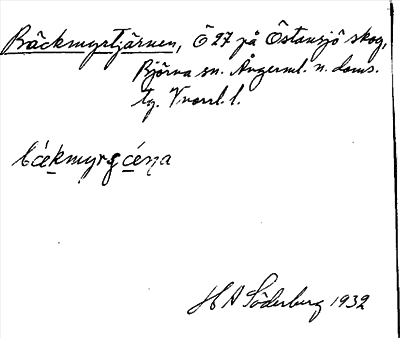 Bäckmyrtjärnen, Ö 27 på Östansjö skog,
Björna sn. Ångerml. n. doms.
tg. Vnorrl. l.
H A Söderberg 1932